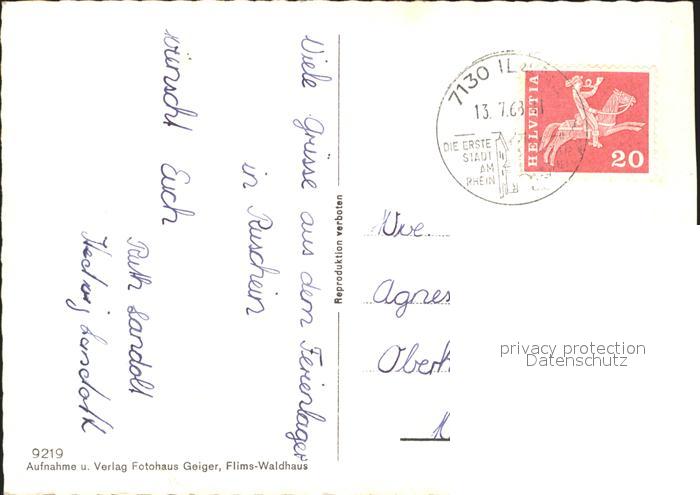 Viele Grüsse aus dem Ferienlager
in Ruschein
wünscht Euch
Ruth Landolt
Hedwig Landolt
9219
Aufnahme u. Verlag Fotohaus Geiger, Flims-Waldhaus
Reproduktion verboten
7130 IL
13. 7.68
DIE ERSTE
STADT
AM
RHEIN
HELVETIA
20
Wwe.
Agnes
Ober
privacy protection
Datenschutz